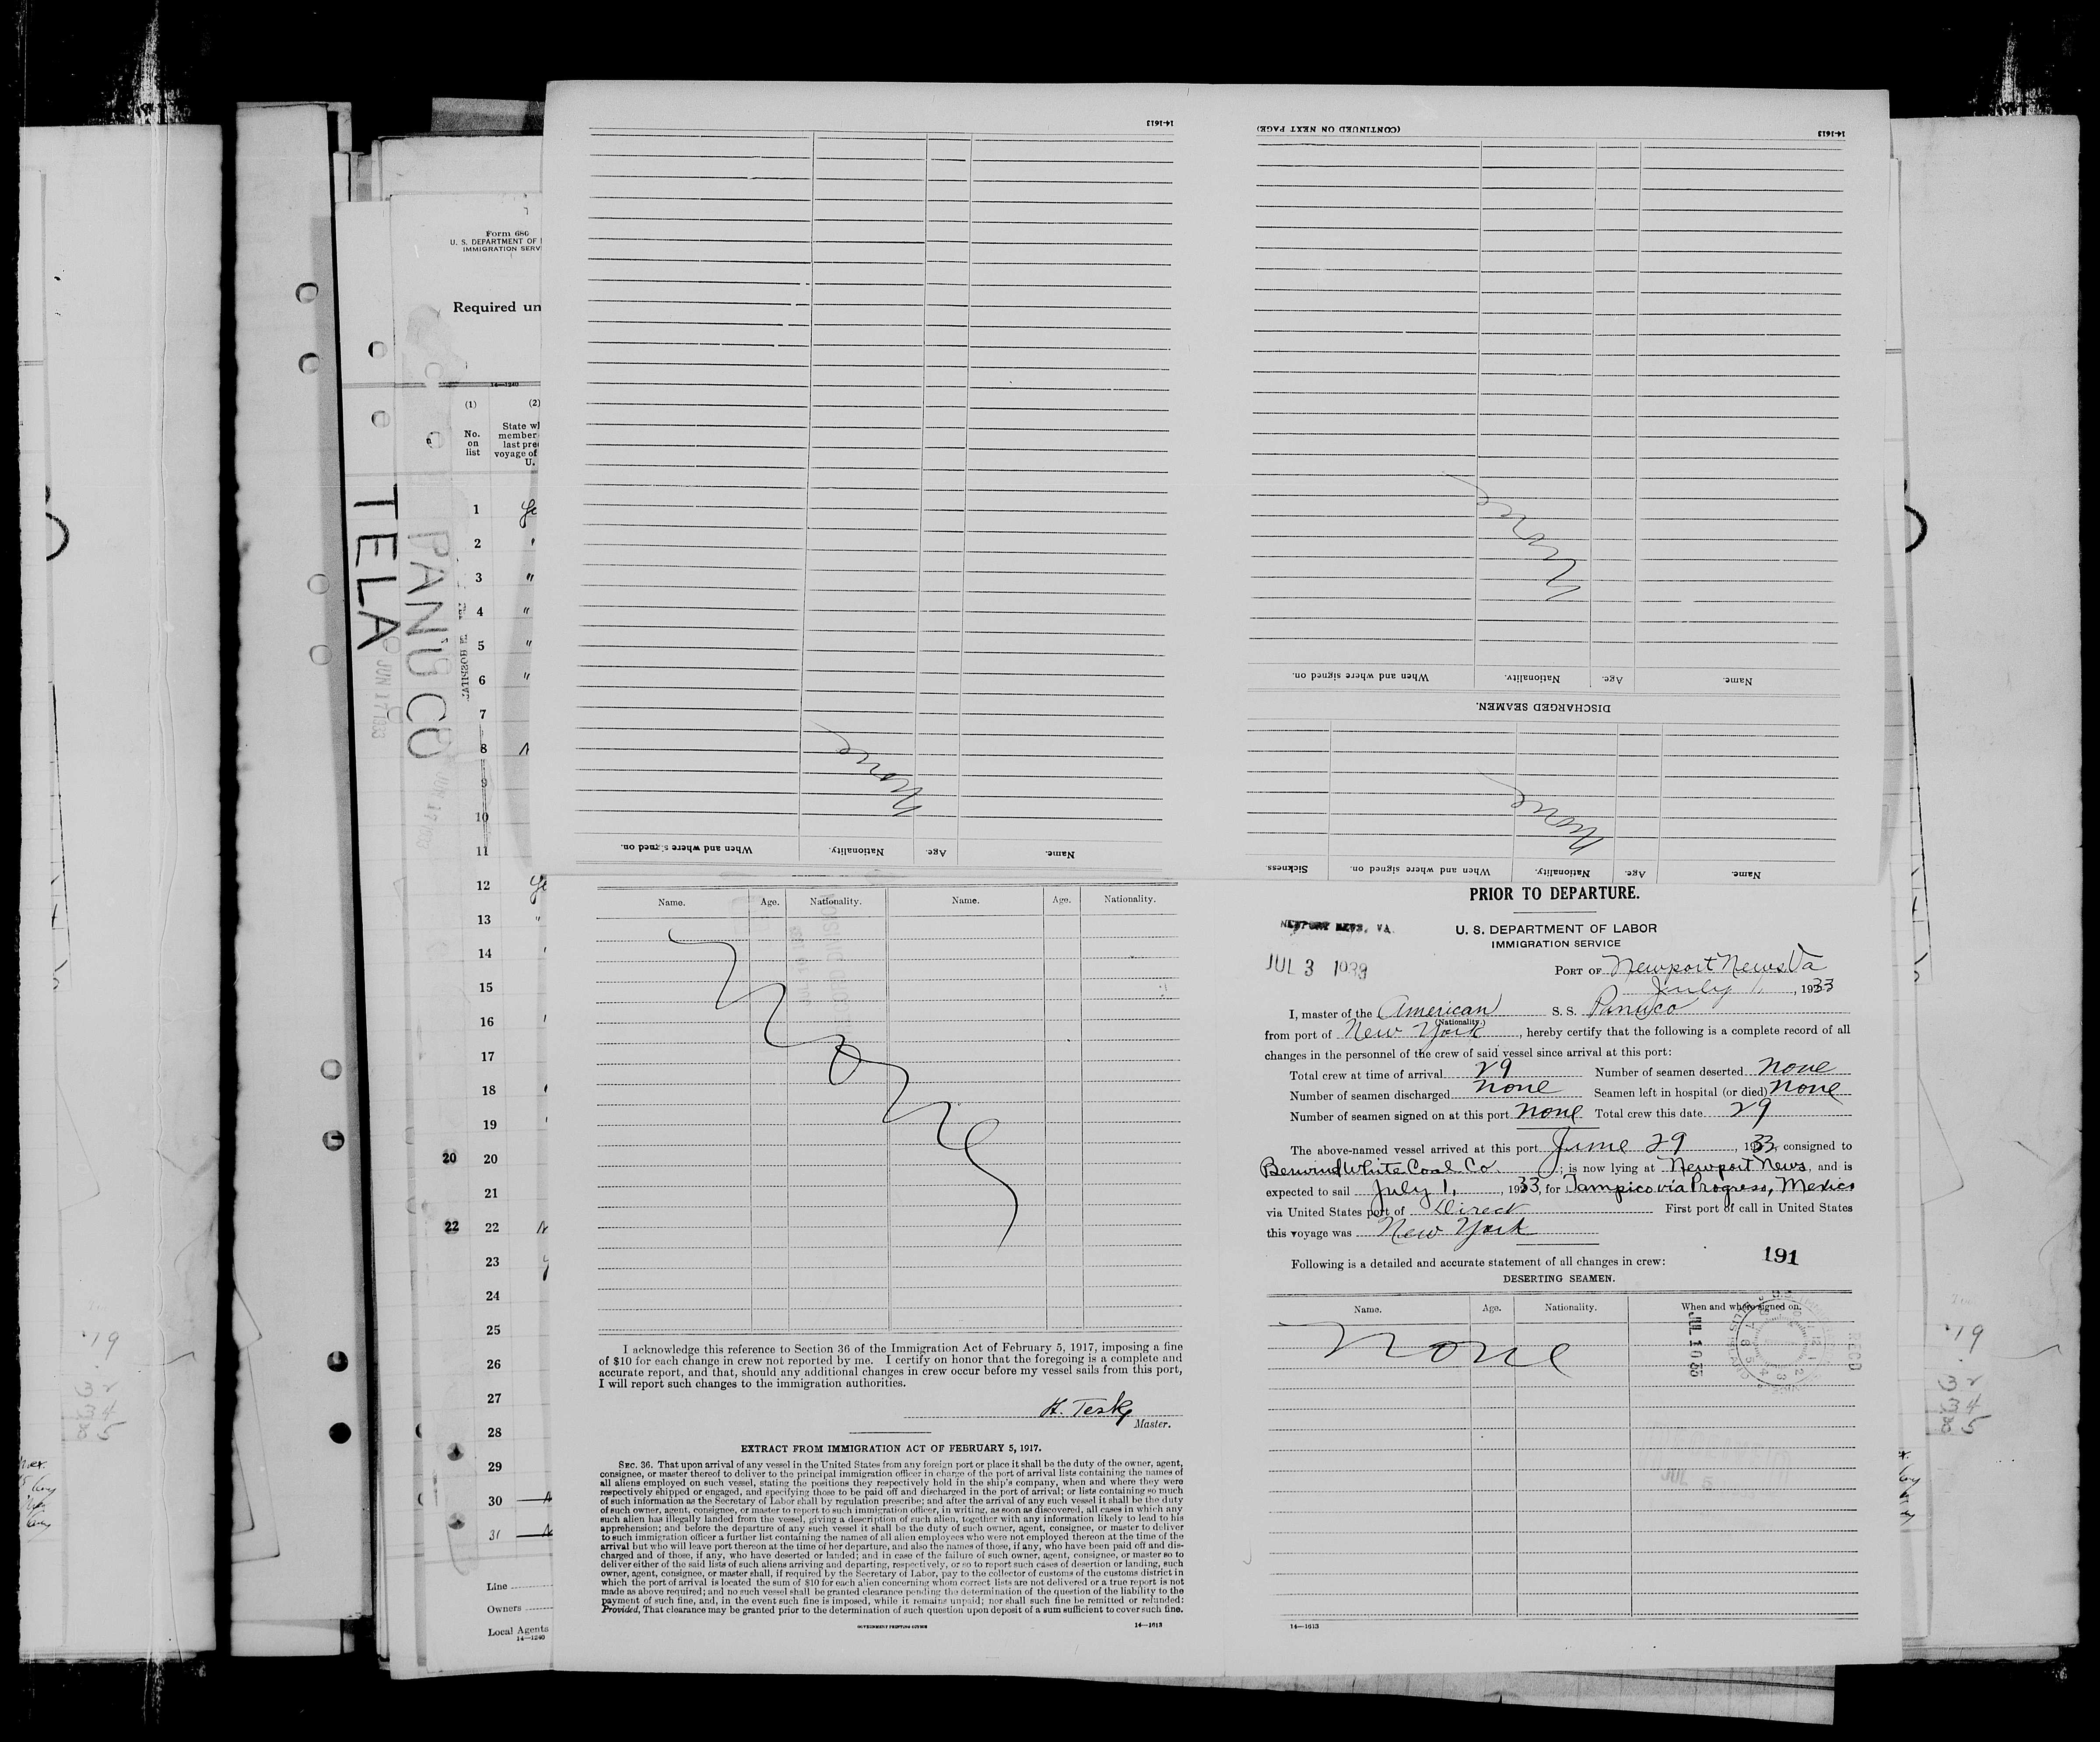 Form 680
U. S. DEPARTMENT OF
IMMIGRATION SERV
Required un
14—1240
(1)
(2)
No.
on
list
State wh
member
last pre
voyage of
U.
TELA
JUN 17 1933
PANUCO
JUN 17 1933
HOSPITAL
1
2
3
4
5
6
7
8
9
10
11
12
13
14
15
16
17
18
19
20 20
21
22 22
23
24
25
26
27
28
29
30
31
Line
Owners
Local Agents
14—1240
14-1613
None
Name. Age. Nationality. When and where signed on.
14-1613
(CONTINUED ON NEXT PAGE)
None
Name. Age. Nationality. When and where signed on.
DISCHARGED SEAMEN.
None
Name. Age. Nationality. When and where signed on. Sickness.
Name. Age. Nationality. Name. Age. Nationality.
None
I acknowledge this reference to Section 36 of the Immigration Act of February 5, 1917, imposing a fine
of $10 for each change in crew not reported by me. I certify on honor that the foregoing is a complete and
accurate report, and that, should any additional changes in crew occur before my vessel sails from this port,
I will report such changes to the immigration authorities.
Master.
EXTRACT FROM IMMIGRATION ACT OF FEBRUARY 5, 1917.
SEC. 36. That upon arrival of any vessel in the United States from any foreign port or place it shall be the duty of the owner, agent,
consignee, or master thereof to deliver to the principal immigration officer in charge of the port of arrival lists containing the names of
all aliens employed on such vessel, stating the positions they respectively hold in the ship's company, when and where they were
respectively shipped or engaged, and specifying those to be paid off and discharged in the port of arrival; or lists containing so much
of such information as the Secretary of Labor shall by regulation prescribe; and after the arrival of any such vessel it shall be the duty
of such owner, agent, consignee, or master to report to such immigration officer, in writing, as soon as discovered, all cases in which any
such alien has illegally landed from the vessel, giving a description of such alien, together with any information likely to lead to his
apprehension; and before the departure of any such vessel it shall be the duty of such owner, agent, consignee, or master to deliver
to such immigration officer a further list containing the names of all alien employees who were not employed thereon at the time of the
arrival but who will leave port thereon at the time of her departure, and also the names of those, if any, who have been paid off and dis-
charged and of those, if any, who have deserted or landed; and in case of the failure of such owner, agent, consignee, or master so to
deliver either of the said lists of such aliens arriving and departing, respectively, or so to report such cases of desertion or landing, such
owner, agent, consignee, or master shall, if required by the Secretary of Labor, pay to the collector of customs of the customs district in
which the port of arrival is located the sum of $10 for each alien concerning whom correct lists are not delivered or a true report is not
made as above required; and no such vessel shall be granted clearance pending the determination of the question of the liability to the
payment of such fine, and, in the event such fine is imposed, while it remains unpaid; nor shall such fine be remitted or refunded:
Provided, That clearance may be granted prior to the determination of such question upon deposit of a sum sufficient to cover such fine.
GOVERNMENT PRINTING OFFICE
14—1613
PRIOR TO DEPARTURE.
NEWPORT NEWS, VA.
U. S. DEPARTMENT OF LABOR
IMMIGRATION SERVICE
JUL 3 1933
PORT OF Newport News Va
July 1, 1933
I, master of the American S. S. Panuco
(Nationality.)
from port of New York, hereby certify that the following is a complete record of all
changes in the personnel of the crew of said vessel since arrival at this port:
Total crew at time of arrival 29 Number of seamen deserted none
Number of seamen discharged none Seamen left in hospital (or died) none
Number of seamen signed on at this port none Total crew this date 29
The above-named vessel arrived at this port June 29, 1933, consigned to
Berwind White Coal Co. ; is now lying at Newport News, and is
expected to sail July 1, 1933, for Tampico via Progreso, Mexico
via United States port of Direct First port of call in United States
this voyage was New York
Following is a detailed and accurate statement of all changes in crew:
191
DESERTING SEAMEN.
Name. Age. Nationality. When and where signed on.
none
JUL 10 33
REC'D
JUL 5
14—1613